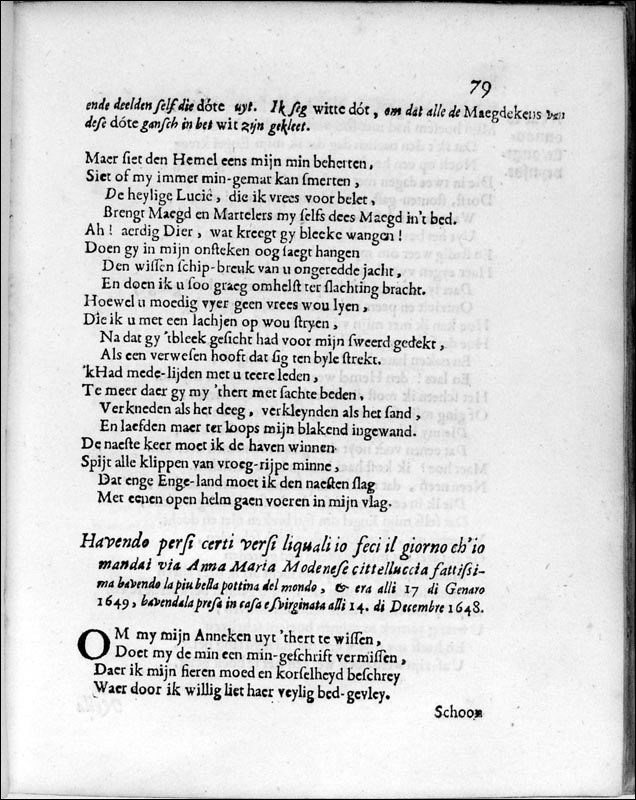 79
ende deelden self die dóte uyt. Ik seg witte dót, om dat alle de Maegdekens van
dese dóte gansch in het wit zijn gekleet.
Maer siet den Hemel eens mijn min beherten,
Siet of my immer min-gemar kan smerten,
De heylige Lucië, die ik vrees voor belet,
Brengt Maegd en Martelers my selfs dees Maegd in't bed.
Ah! aerdig Dier, wat kreegt gy bleeke wangen!
Doen gy in mijn onsteken oog saegt hangen
Den wissen schip-breuk van u ongeredde jacht,
En doen ik u soo graeg omhelst ter slachting bracht.
Hoewel u moedig vyer geen vrees wou lyen,
Die ik u met een lachjen op wou stryen,
Na dat gy 'tbleek gesicht had voor mijn sweerd gedekt,
Als een verwesen hooft dat sig ten byle strekt.
'kHad mede-lijden met u teere leden,
Te meer daer gy my 'thert met sachte beden,
Verkneden als het deeg, verkleynden als het sand,
En laefden maer ter loops mijn blakend ingewand.
De naeste keer moet ik de haven winnen
Spijt alle klippen van vroeg-rijpe minne,
Dat enge Enge-land moet ik den naesten slag
Met eenen open helm gaen voeren in mijn vlag.
Havendo persi certi versi liquali io feci il giorno ch'io
mandai via Anna Maria Modenese cittelluccia fattissi-
ma havendo la piu bella pottina del mondo, & era alli 17 di Genaro
1649, havendala presa in casa e svirginata alli 14. di Decembre 1648.
OM my mijn Anneken uyt 'thert te wissen,
Doet my de min een min-geschrift vermissen,
Daer ik mijn fieren moed en korselheyd beschrey
Waer door ik willig liet haer veylig bed-gevley.
Schoon